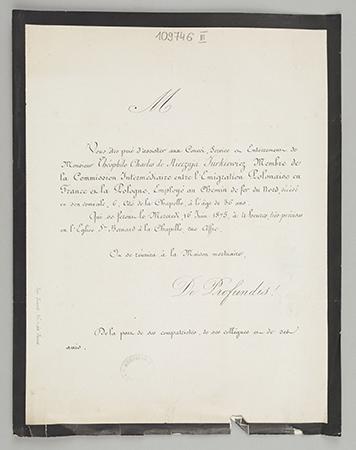 109746 III
M
Vous êtes prié d'assister aux Convoi, Service et Enterrement de
Monsieur Théophile Charles de Jurkiewicz Membre de
la Commission Intermédiaire entre l'Emigration Polonaise en
France et la Pologne, Employé au Chemin de fer du Nord, décédé
en son domicile, 6, Cité de la Chapelle, à l'âge de 86 ans.
Qui se feront le Mercredi 16 Juin 1875, à 4 heures très précises
en l'Eglise St. Bernard à la Chapelle, rue Affre.
On se réunira à la Maison mortuaire.
De Profundis!
De la part de ses compatriotes, de ses collègues et de ses
amis.